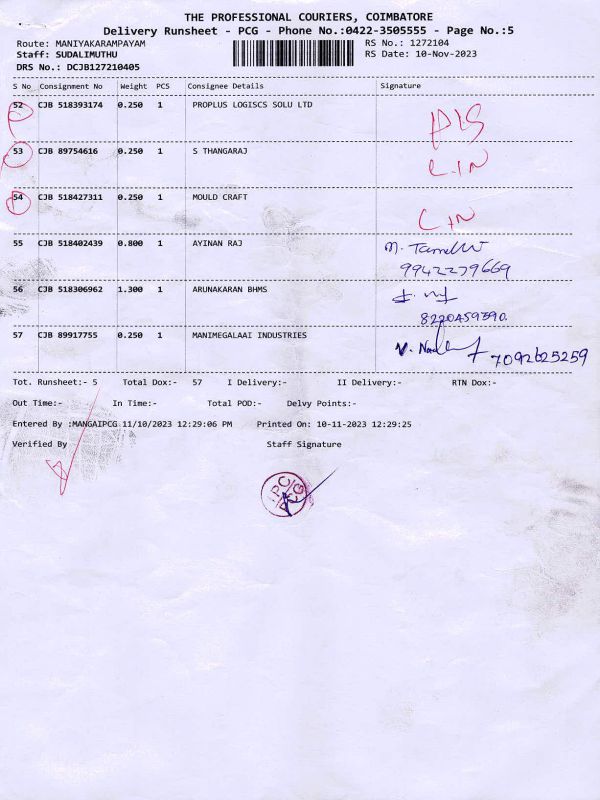 THE PROFESSIONAL COURIERS, COIMBATORE
Delivery Runsheet - PCG - Phone No.:0422-3505555 - Page No.:5
Route: MANIYAKARAMPAYAM RS No.: 1272104
Staff: SUDALIMUTHU RS Date: 10-Nov-2023
DRS No.: DCJB127210405
S No Consignment No Weight PCS Consignee Details Signature
52 CJB 518393174 0.250 1 PROPLUS LOGISCS SOLU LTD
53 CJB 89754616 0.250 1 S THANGARAJ
54 CJB 518427311 0.250 1 MOULD CRAFT
55 CJB 518402439 0.800 1 AYINAN RAJ
9942279669
56 CJB 518306962 1.300 1 ARUNAKARAN BHMS
8220459390.
57 CJB 89917755 0.250 1 MANIMEGALAAI INDUSTRIES
7092625259
Tot. Runsheet:- 5 Total Dox:- 57 I Delivery:- II Delivery:- RTN Dox:-
Out Time:- In Time:- Total POD:- Delvy Points:-
Entered By :MANGAIPCG 11/10/2023 12:29:06 PM Printed On: 10-11-2023 12:29:25
Verified By Staff Signature